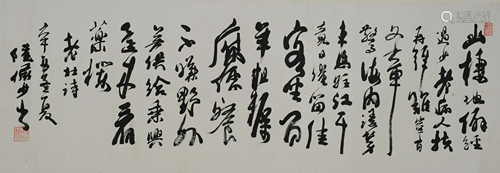 幽棲地僻經
過少老病人扶
再拜難豈有
文章
驚海内漫勞
車馬駐江干
竟日淹留佳
客坐百
年粗糲
腐儒餐
不嫌野外
無供給乘興
還来看
藥欄
老杜詩
陸儼少